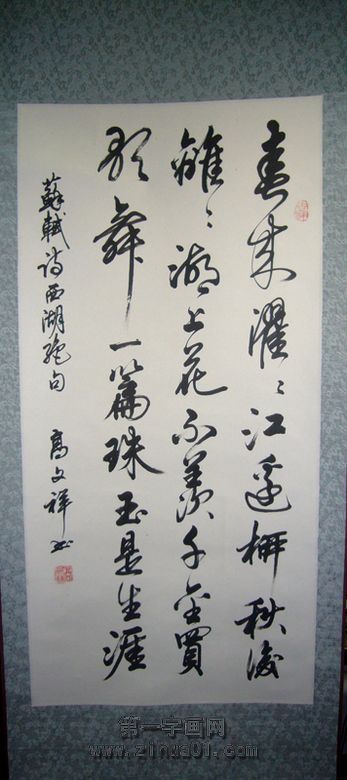 春来濯々江邊柳秋後
離々湖上花不羡千金買
歌舞一篇珠玉是生涯
蘇軾诗西湖絕句 高文祥书
第一字画网
www.zihua01.com